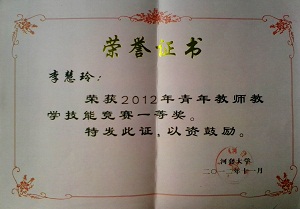 荣誉证书
李慧玲：
荣获2012年青年教师教
学技能竞赛一等奖。
特发此证，以资鼓励。
河套大学
二〇一二年十一月